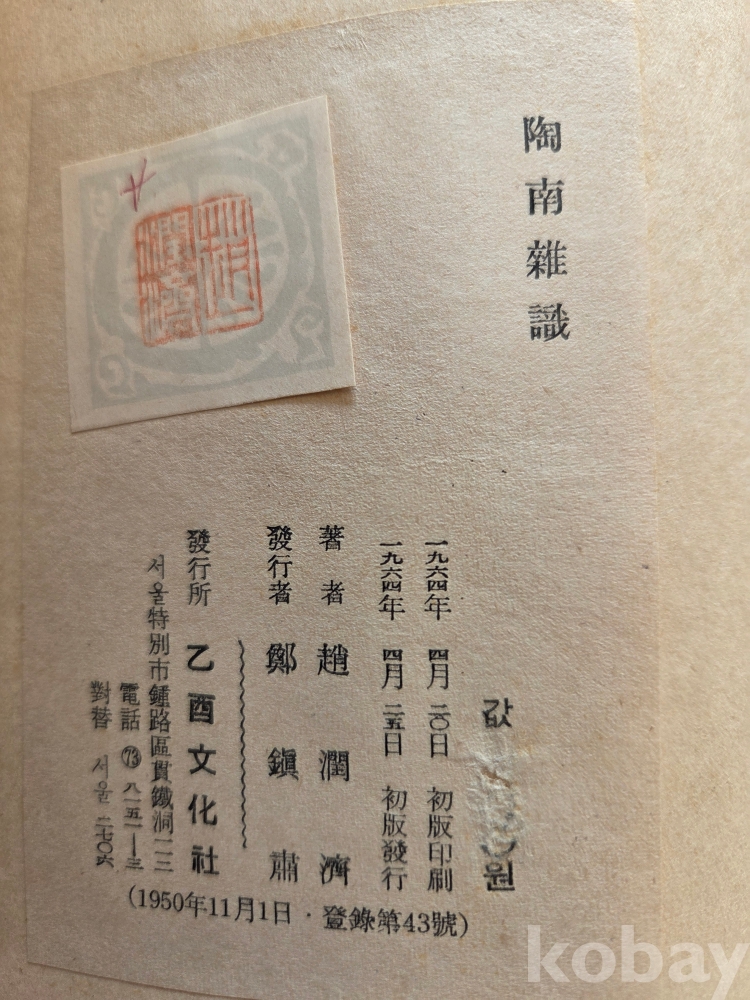 陶南雜識
값 원
一九六四年 四月 二〇日 初版印刷
一九六四年 四月 二五日 初版發行
著者 趙潤濟
發行者 鄭鎭肅
發行所 乙酉文化社
서울特別市鍾路區貫鐵洞一二三
電話 ㊆ 八一五一—三
對替 서울 二七〇六
(1950年11月1日 · 登錄第43號)
kobay